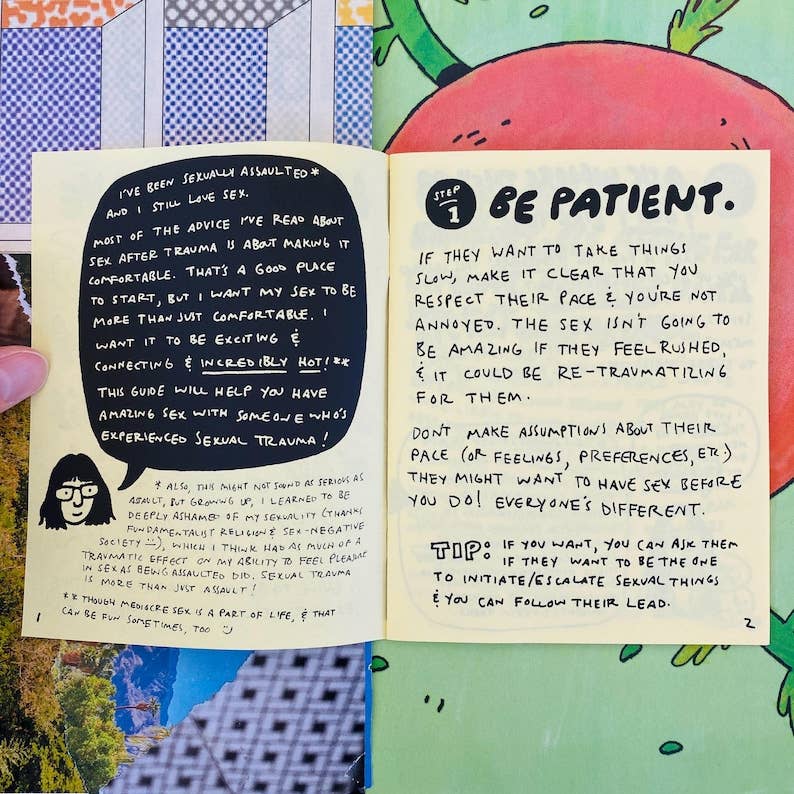 I'VE BEEN SEXUALLY ASSAULTED*
AND I STILL LOVE SEX.
MOST OF THE ADVICE I'VE READ ABOUT
SEX AFTER TRAUMA IS ABOUT MAKING IT
COMFORTABLE. THAT'S A GOOD PLACE
TO START, BUT I WANT MY SEX TO BE
MORE THAN JUST COMFORTABLE. I
WANT IT TO BE EXCITING &
CONNECTING & INCREDIBLY HOT!**
THIS GUIDE WILL HELP YOU HAVE
AMAZING SEX WITH SOMEONE WHO'S
EXPERIENCED SEXUAL TRAUMA!
* ALSO, THIS MIGHT NOT SOUND AS SERIOUS AS
ASSAULT, BUT GROWING UP, I LEARNED TO BE
DEEPLY ASHAMED OF MY SEXUALITY (THANKS
FUNDAMENTALIST RELIGION & SEX-NEGATIVE
SOCIETY :)), WHICH I THINK HAD AS MUCH OF A
TRAUMATIC EFFECT ON MY ABILITY TO FEEL PLEASURE
IN SEX AS BEING ASSAULTED DID. SEXUAL TRAUMA
IS MORE THAN JUST ASSAULT!
** THOUGH MEDIOCRE SEX IS A PART OF LIFE, & THAT
CAN BE FUN SOMETIMES, TOO :)
1
STEP 1 BE PATIENT.
IF THEY WANT TO TAKE THINGS
SLOW, MAKE IT CLEAR THAT YOU
RESPECT THEIR PACE & YOU'RE NOT
ANNOYED. THE SEX ISN'T GOING TO
BE AMAZING IF THEY FEEL RUSHED,
& IT COULD BE RE-TRAUMATIZING
FOR THEM.
DON'T MAKE ASSUMPTIONS ABOUT THEIR
PACE (OR FEELINGS, PREFERENCES, ETC.)
THEY MIGHT WANT TO HAVE SEX BEFORE
YOU DO! EVERYONE'S DIFFERENT.
TIP: IF YOU WANT, YOU CAN ASK THEM
IF THEY WANT TO BE THE ONE
TO INITIATE/ESCALATE SEXUAL THINGS
& YOU CAN FOLLOW THEIR LEAD.
2